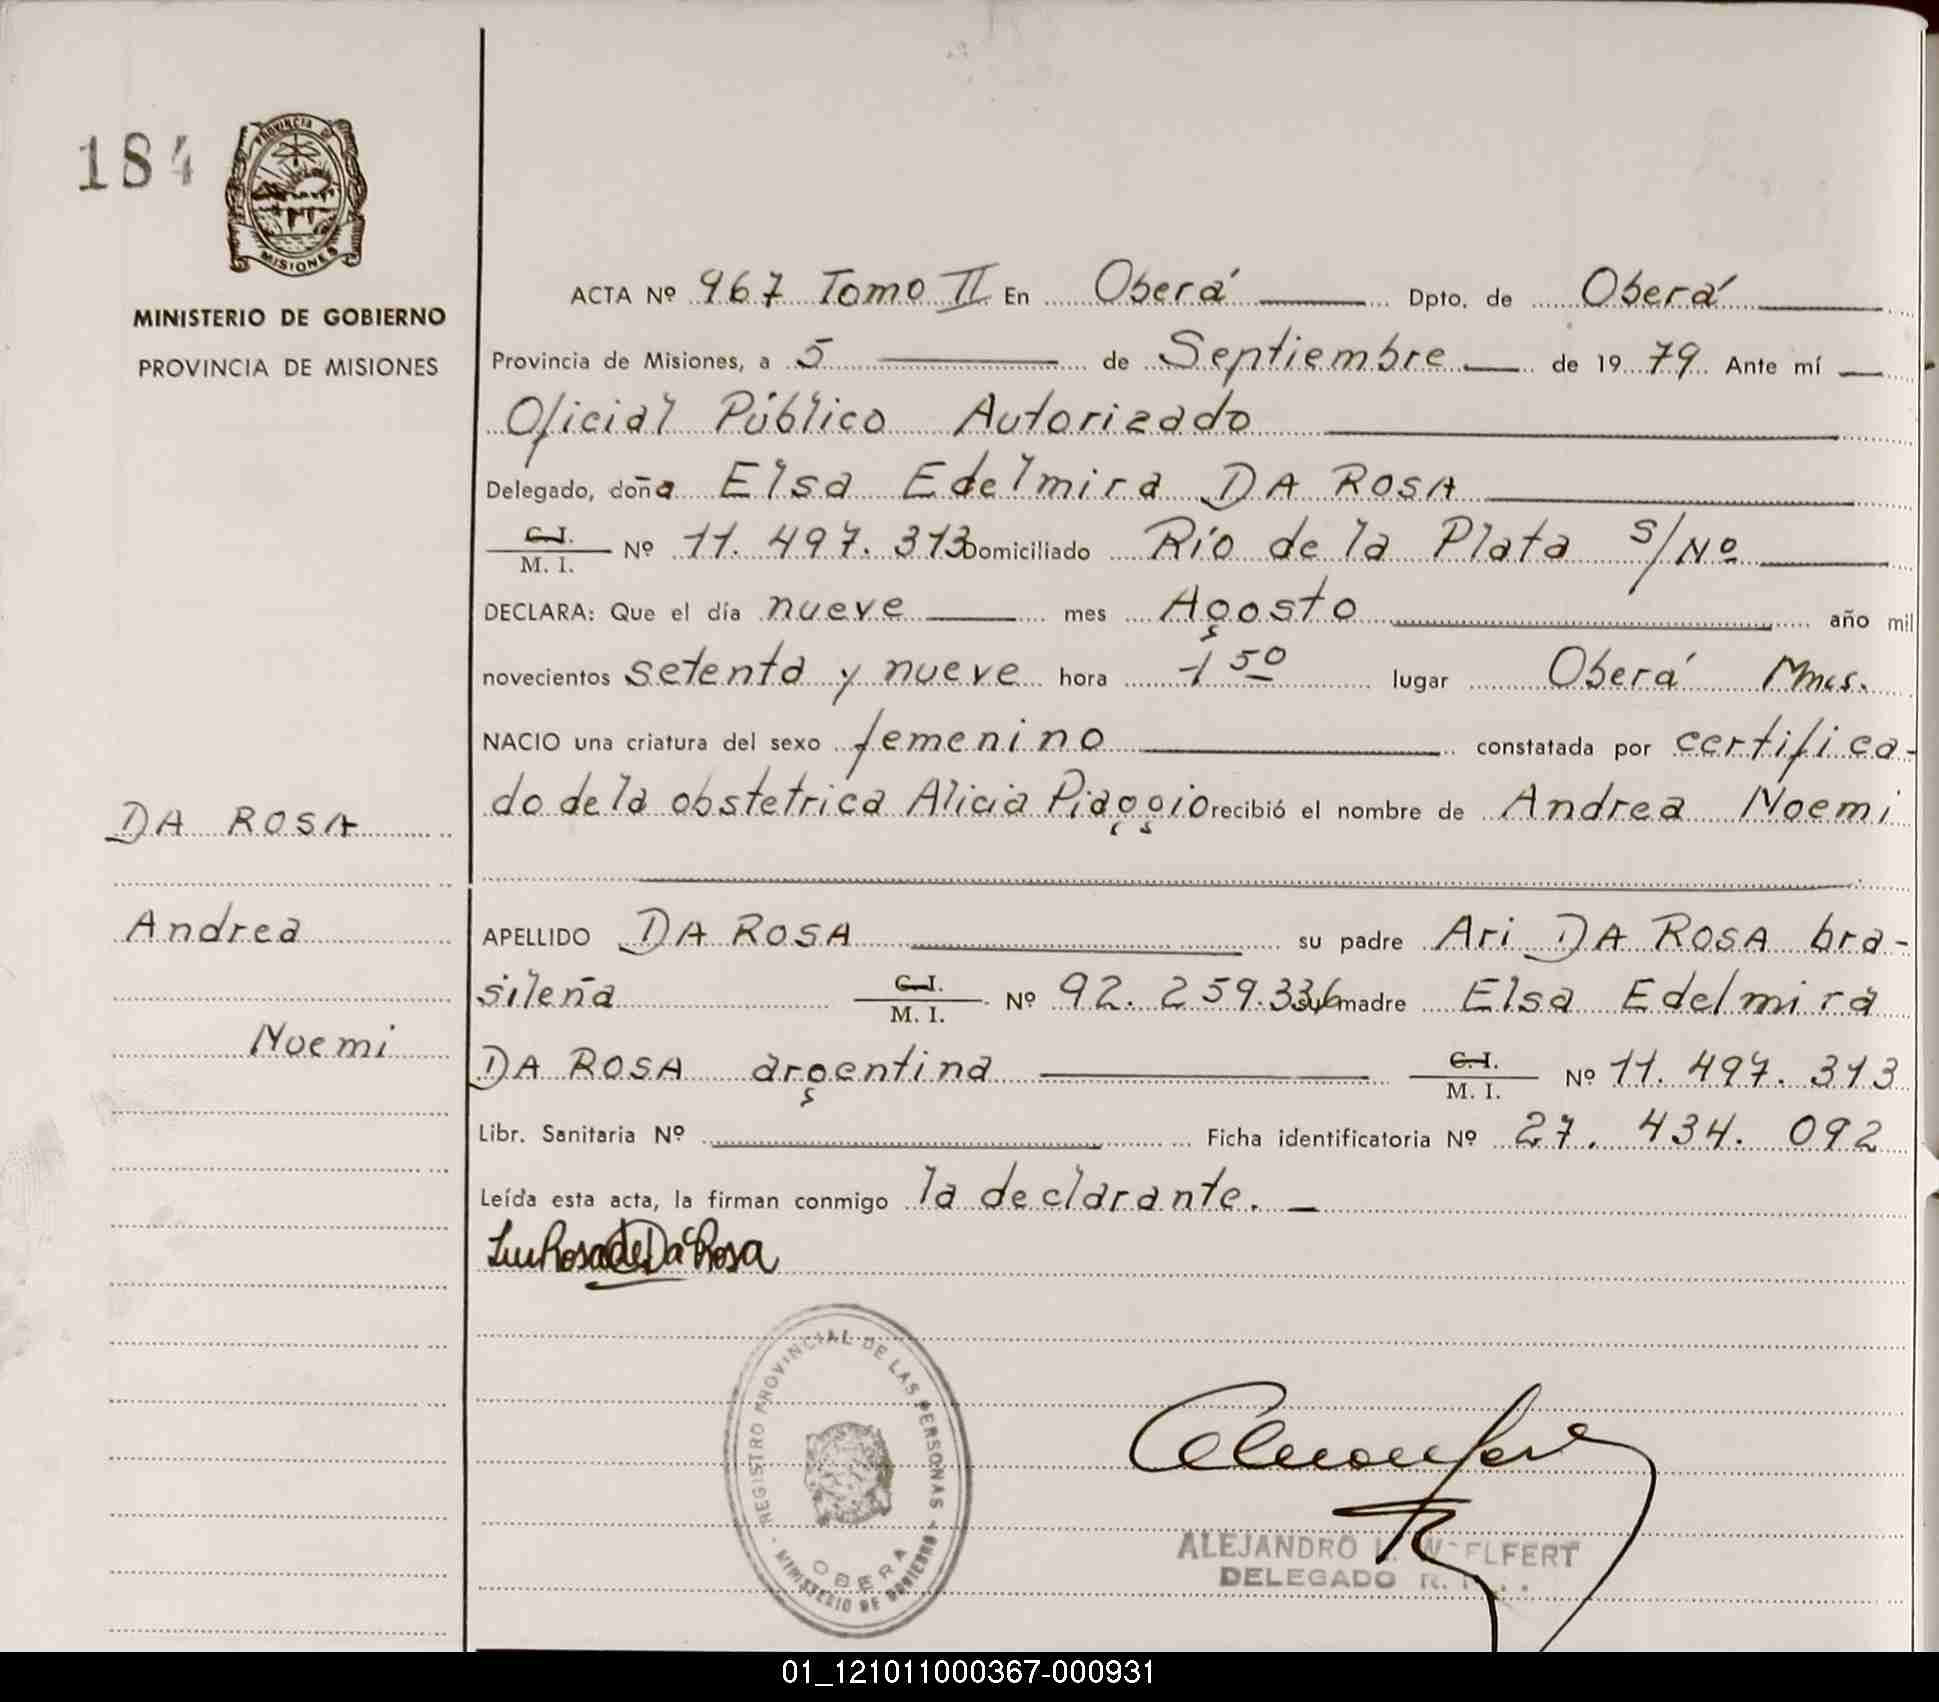 184
PROVINCIA DE
MISIONES
MINISTERIO DE GOBIERNO
PROVINCIA DE MISIONES
DA ROSA
Andrea
Noemi
ACTA Nº 967 Tomo II En Oberá Dpto. de Oberá
Provincia de Misiones, a 5 de Septiembre de 1979 Ante mí
Oficial Público Autorizado
Delegado, doña Elsa Edelmira DA ROSA
C.I. / M. I. Nº 11.497.313 Domiciliado Río de la Plata S/Nº
DECLARA: Que el día nueve mes Agosto año mil
novecientos setenta y nueve hora 1 50 lugar Oberá Mnes.
NACIO una criatura del sexo femenino constatada por certifica-
do de la obstetrica Alicia Piaggio recibió el nombre de Andrea Noemi
APELLIDO DA ROSA su padre Ari DA ROSA bra-
sileña C.I. / M. I. Nº 92.259.336 su madre Elsa Edelmira
DA ROSA argentina C.I. / M. I. Nº 11.497.313
Libr. Sanitaria Nº Ficha identificatoria Nº 27.434.092
Leída esta acta, la firman conmigo la declarante.
de Da Rosa
REGISTRO PROVINCIAL DE LAS PERSONAS
MINISTERIO DE GOBIERNO
OBERA
ALEJANDRO WELFERT
DELEGADO R.
01_121011000367-000931